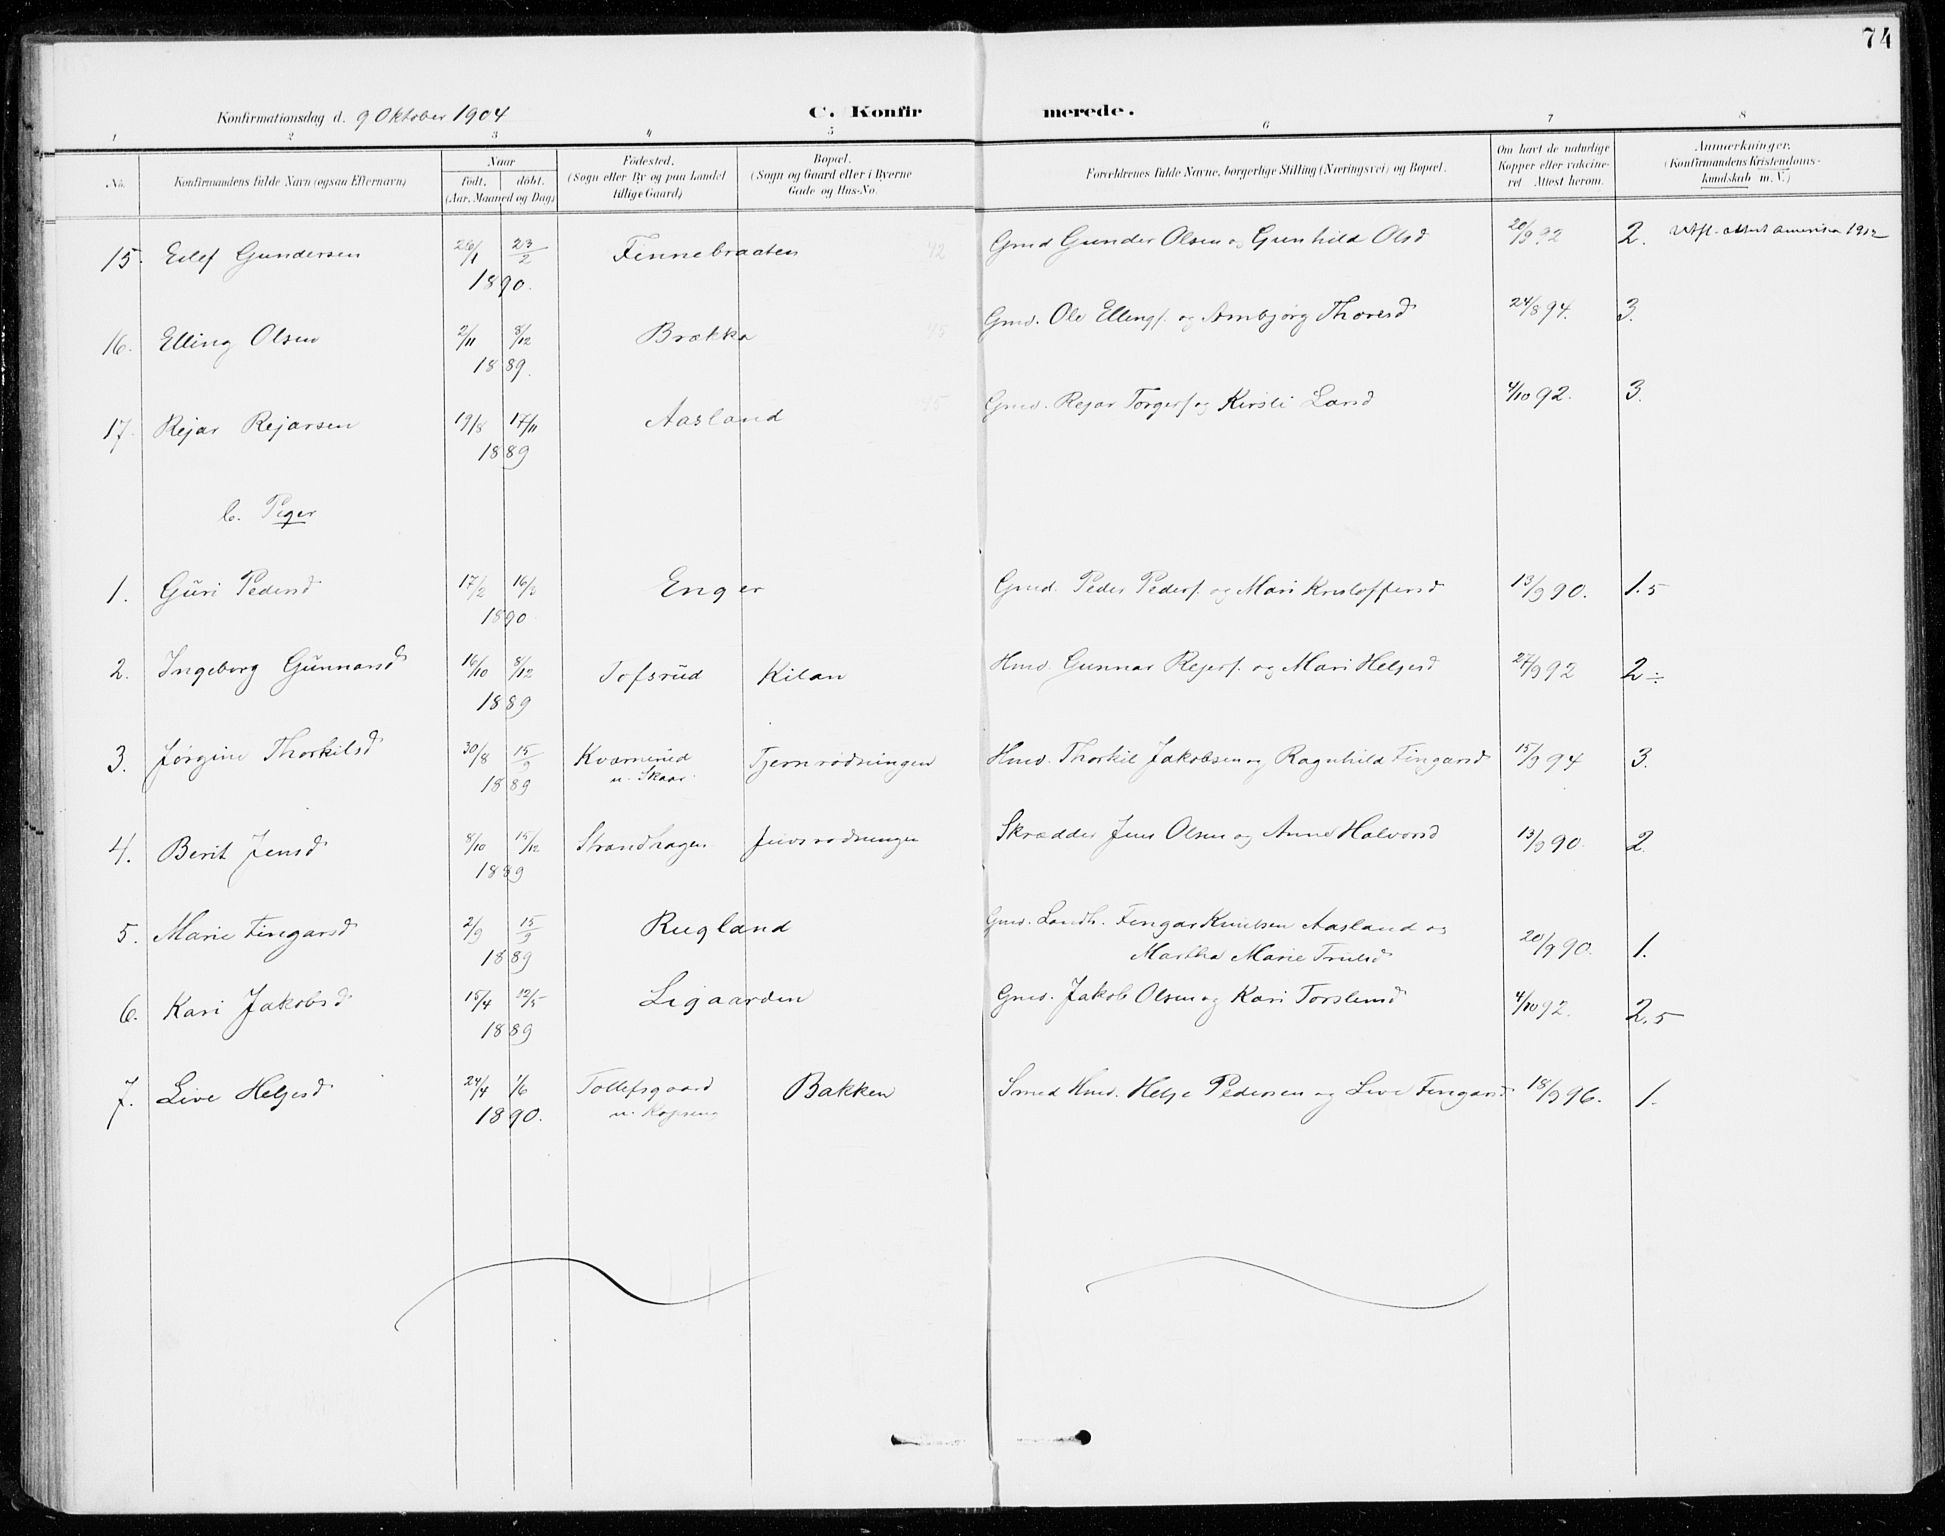 74
Konfirmationsdag d. 9 Oktober 1904
C. Konfirmerede.
1 2 3 4 5 6 7 8
No.
Konfirmandens fulde Navn (ogsaa Efternavn)
Naar
født. døbt.
(Aar, Maaned og Dag)
Fødested.
(Sogn eller By og paa Landet
tillige Gaard)
Bopæl.
(Sogn og Gaard eller i Byerne
Gade og Hus-No.
Forældrenes fulde Navne, borgerlige Stilling (Næringsvei) og Bopæl.
Om havt de naturlige
Kopper eller vakcine-
ret. Attest herom.
Anmærkninger.
(Konfirmandens Kristendoms-
kundskab m.V.)
15. Eilef Gundersen 26/1 23/2 Finnebraaten 42 Gmd Gunder Olsen og Gunhild Olsd 20/9 92 2. Utfl. attest Amerika 1912
1890.
16. Elling Olsen 2/11 8/12 Brække 45 Gmd. Ole Ellings. og Ambjørg Thoresd 24/8 94. 3.
1889.
17. Rejar Rejarsen 19/8 17/11 Aasland 45 Gmd. Rejar Torgers og Kirsti Larsd 4/10 92. 3.
1889
b. Piger
1. Guri Pedersd 17/2 16/3 Enger Gmd. Peder Peders. og Mari Kristoffersd 13/9 90. 1.5
1890.
2. Ingeborg Gunnarsd 16/10 8/12 Tofsrud Kilan Hmd. Gunnar Rejers. og Mari Helgesd 27/9 92 2÷
1889
3. Jørgine Thorkilsd 30/8 15/9 Kværnrud Tjernrødningen Hmd. Thorkil Jakobsen og Ragnhild Fingarsd 15/9 94 3.
u. Skaar.
1889
4. Berit Jensd 8/10 15/12 Strandhagen Juvsrødningen Skrædder Jens Olsen og Anne Halvorsd 13/9 90. 2.
1889
5. Marie Fingarsd 2/9 15/9 Rugland Gmd. Landh. Fingar Knudsen Aasland og
Martha Marie Trulsd 20/9 90. 1.
1889
6. Kari Jakobsd 15/4 12/5 Ligaarden Gmd. Jakob Olsen og Kari Torstensd 4/10 92. 2.5
1889
7. Live Helgesd 24/4 1/6 Tollefsgaard Bakken Smed Hmd. Helge Pedersen og Live Fingarsd 18/9 96. 1.
u. Kopseng
1890.